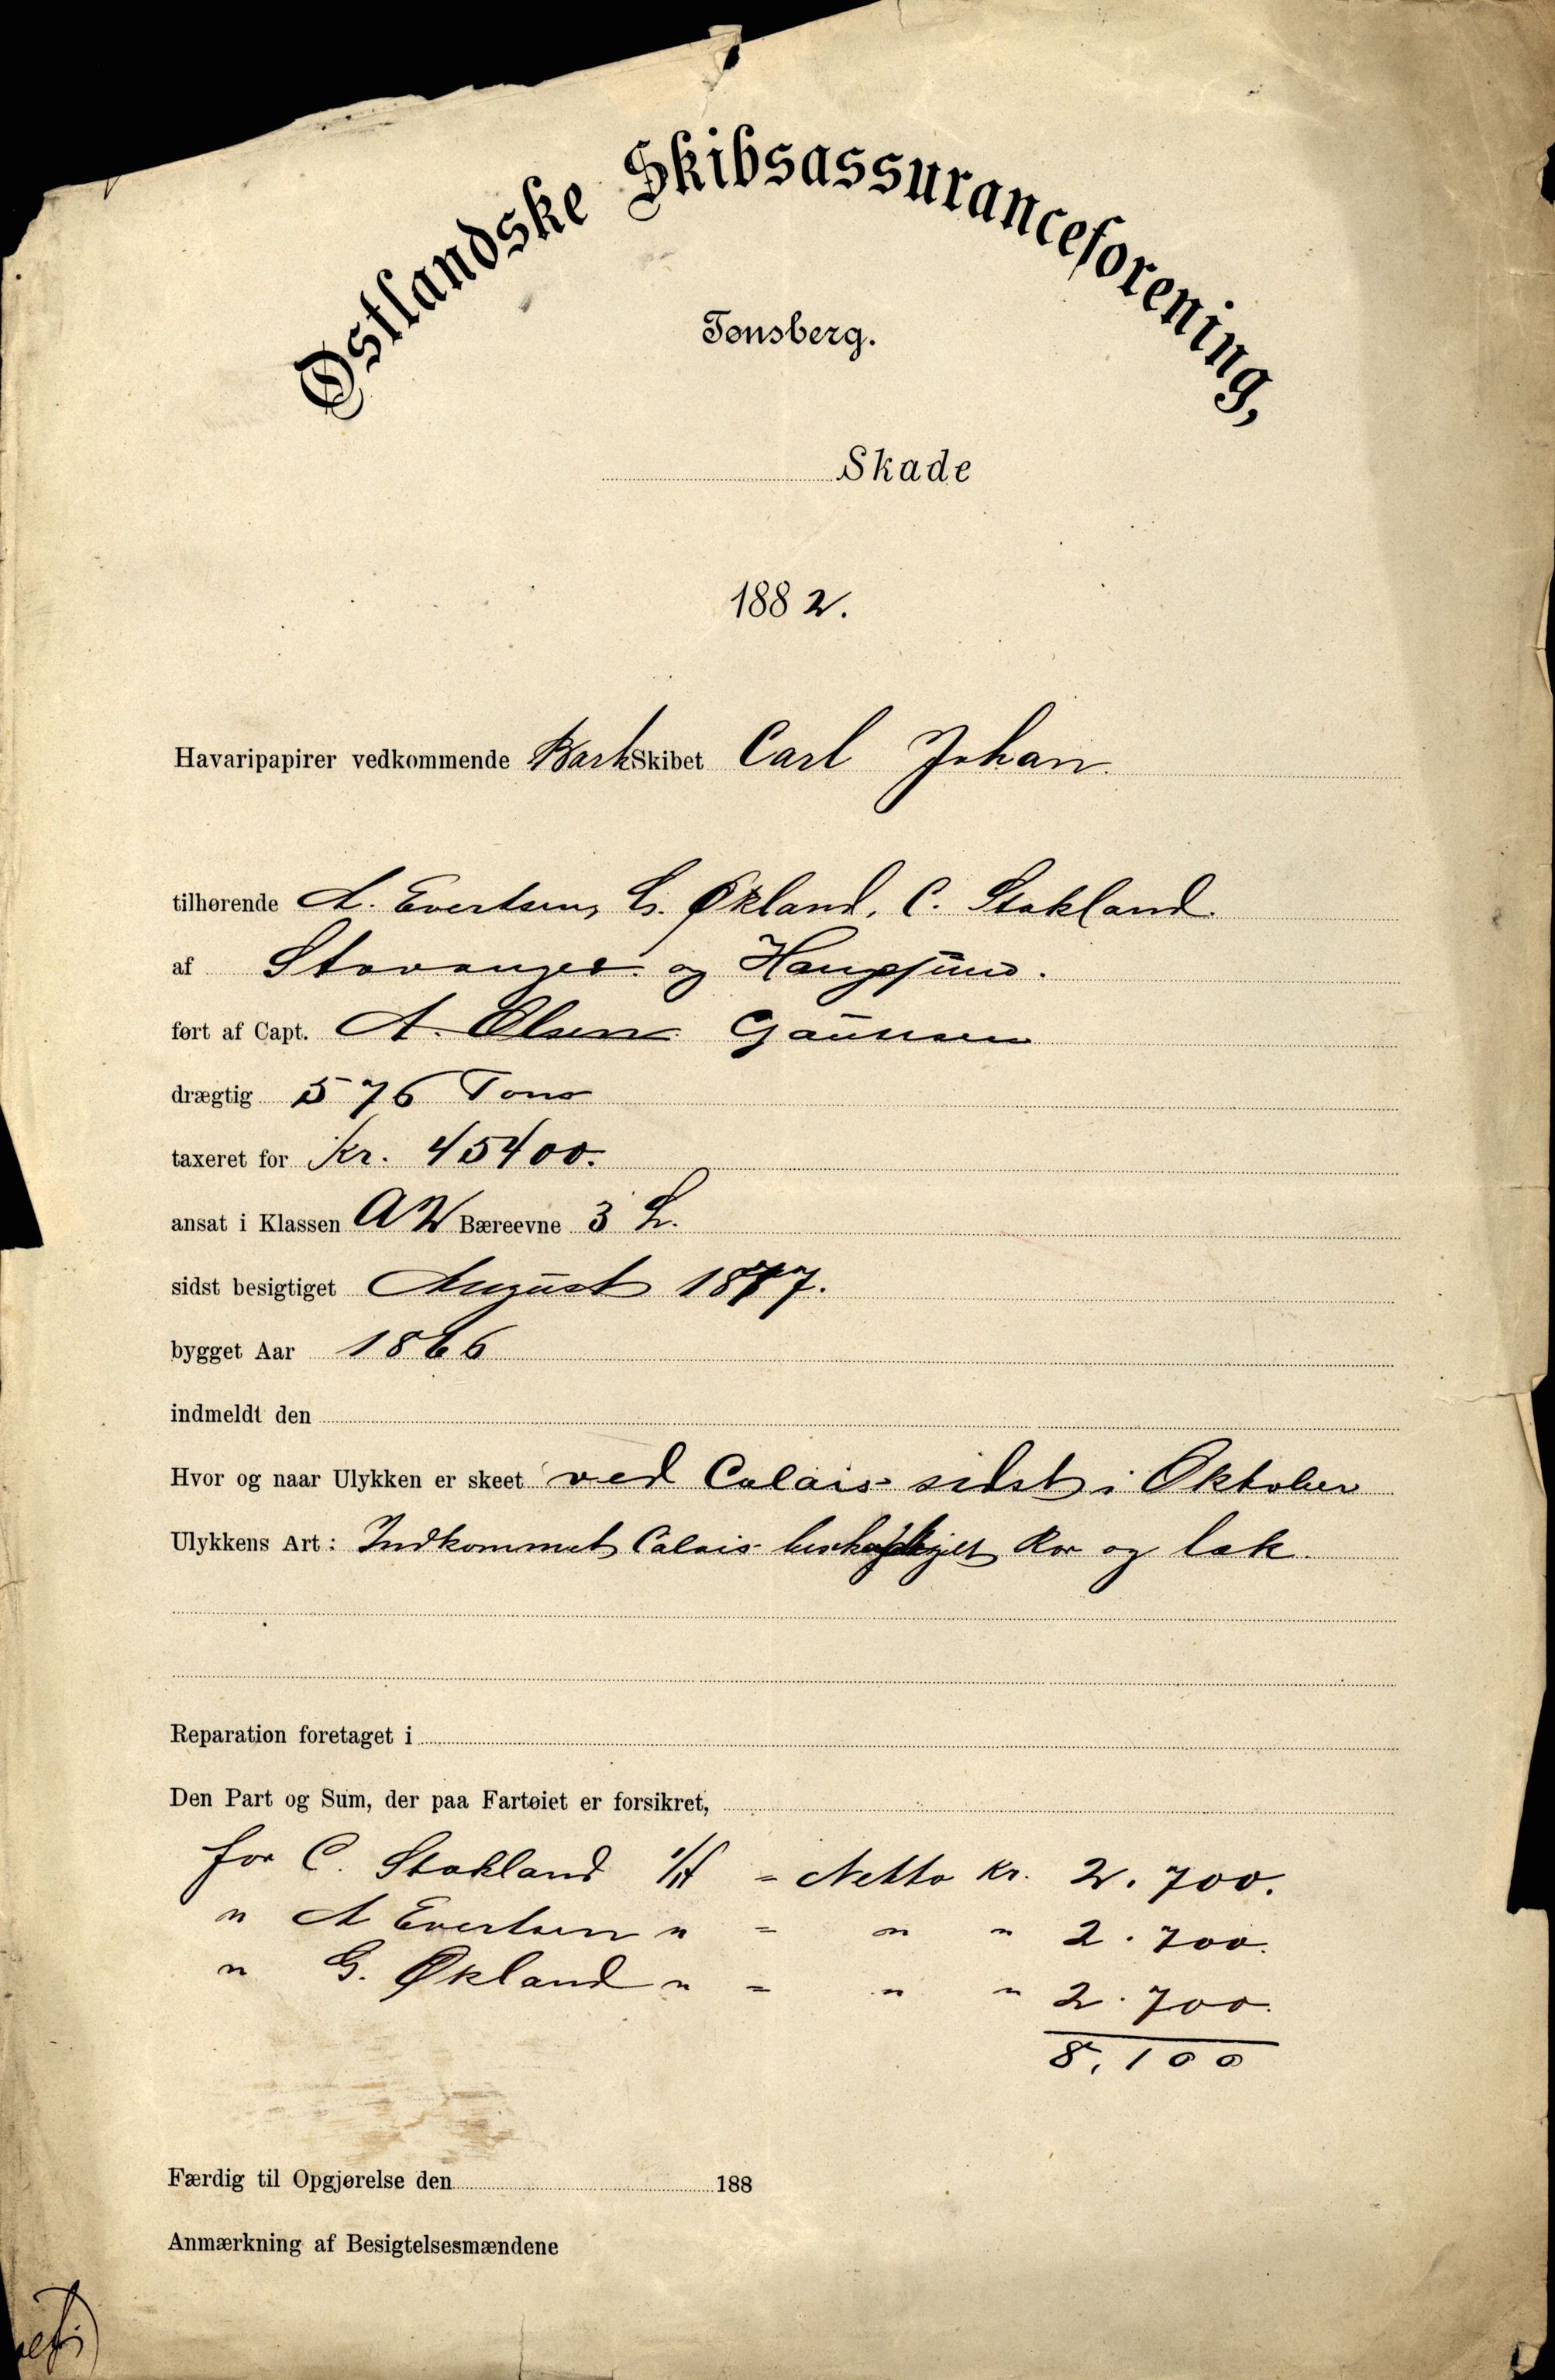 Østlandske Skibsassuranceforening,
Tønsberg.
Skade
1882.
Havaripapirer vedkommende Bark Skibet Carl Johan.
tilhørende A. Evertsen, G. Økland, C. Stakland.
af Stavanger og Haugesund.
ført af Capt. A. Olsen Gaunsen
drægtig 576 Tons
taxeret for Kr. 45400.
ansat i Klassen A2 Bæreevne 3 L.
sidst besigtiget August 1877.
bygget Aar 1866
indmeldt den
Hvor og naar Ulykken er skeet ved Calais sidst i Oktober
Ulykkens Art: Indkommet Calais Ror og læk.
Reparation foretaget i
Den Part og Sum, der paa Fartøiet er forsikret,
for C. Stakland = Netto Kr. 2.700.
" A Evertsen " = " " 2.700.
" G. Økland " = " " 2.700.
8,100
Færdig til Opgjørelse den 188
Anmærkning af Besigtelsesmændene